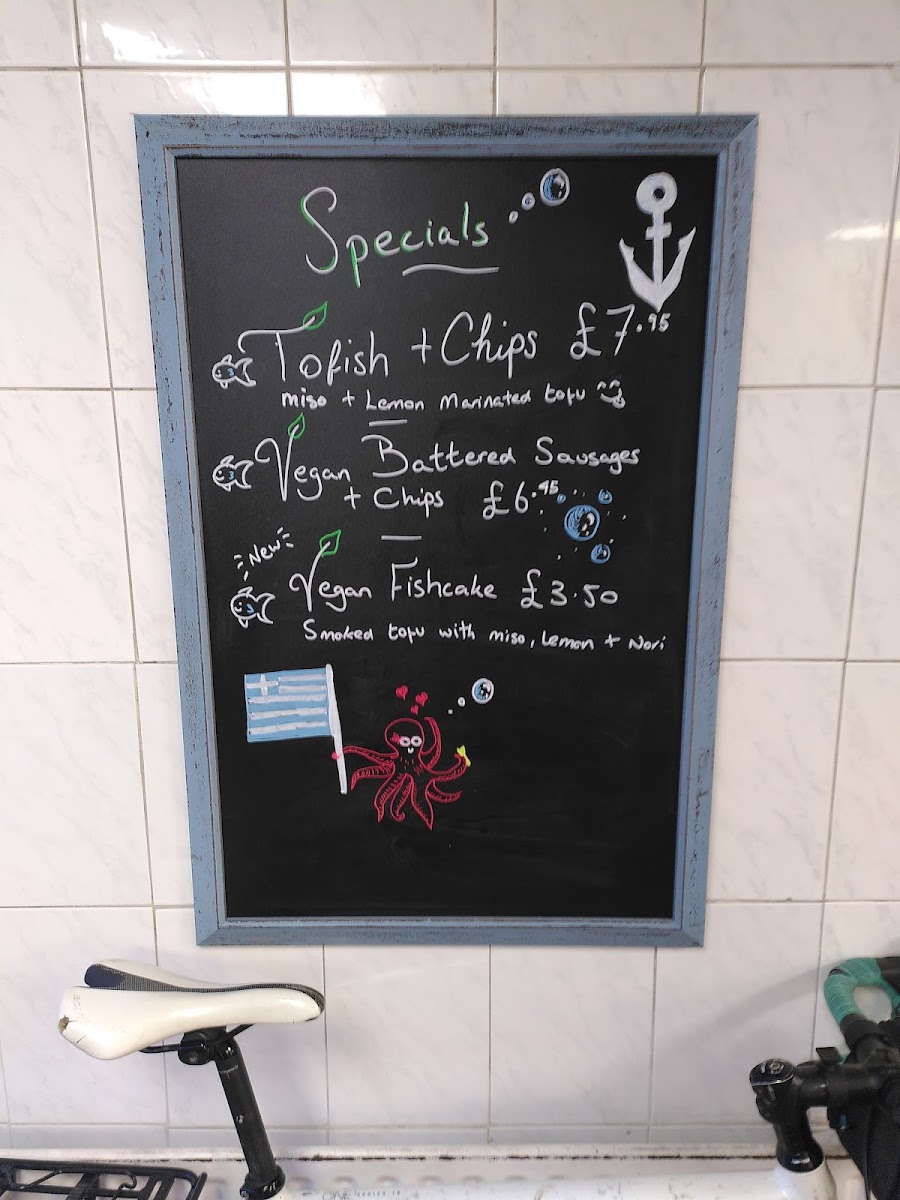 Specials
Tofish + Chips £7.95
miso + Lemon Marinated tofu
Vegan Battered Sausages
+ Chips £6.95
New
Vegan Fishcake £3.50
Smoked tofu with miso, Lemon + Nori